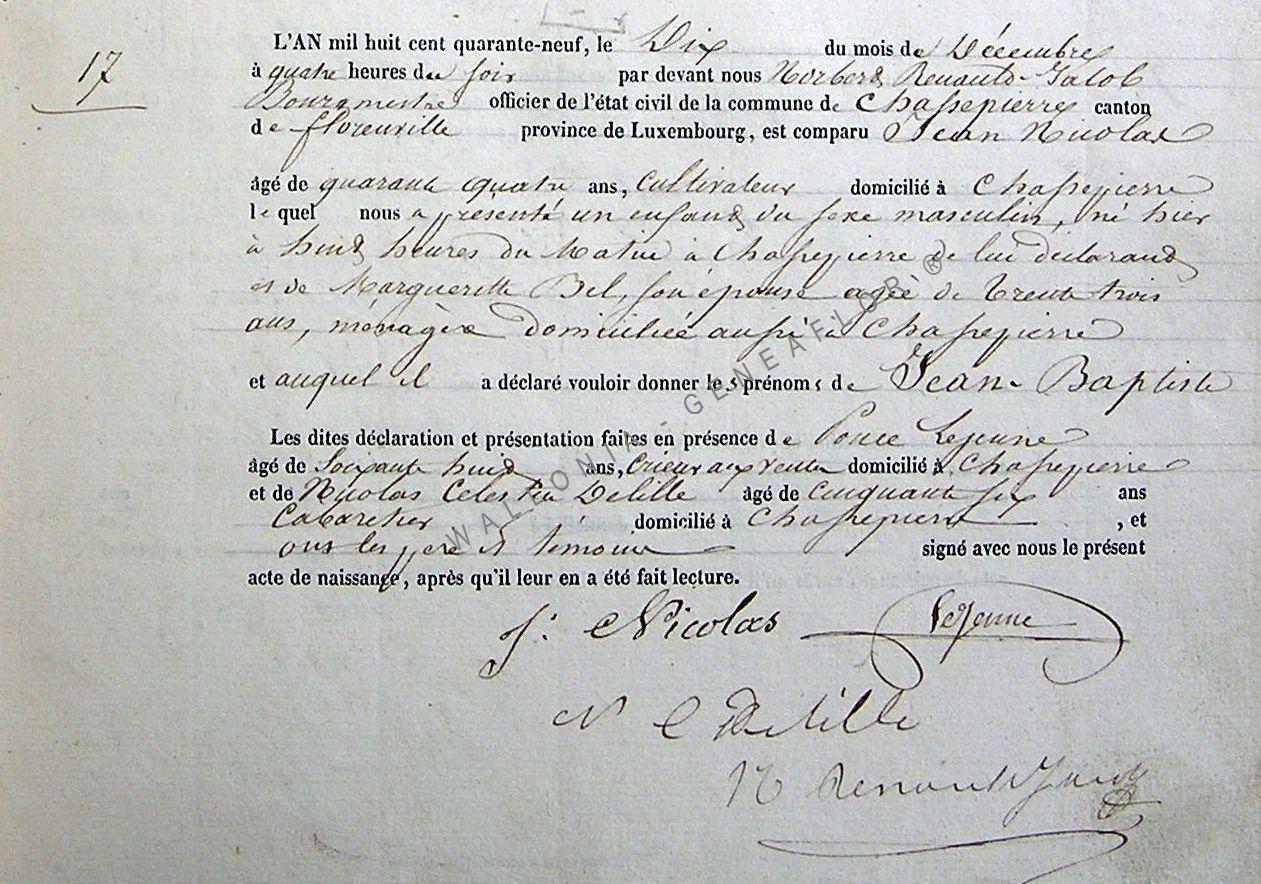 17
L'AN mil huit cent quarante-neuf, le Dix du mois de Décembre
à quatre heures du soir par devant nous Norbert Renauld-Jacob
Bourgmestre officier de l'état civil de la commune de Chassepierre canton
de florenville province de Luxembourg, est comparu Jean Nicolas
âgé de quarante quatre ans, Cultivateur domicilié à Chassepierre
lequel nous a présenté un enfant du sexe masculin, né hier
à huit heures du Matin à Chassepierre de lui déclarant
et de Marguerite Bel, son épouse agée de trente trois
ans, ménagère domiciliée aussi à Chassepierre
et auquel il a déclaré vouloir donner les prénoms de Jean-Baptiste
Les dites déclaration et présentation faites en présence de Ponce Lejeune
âgé de Soixante huit ans, Crieur aux ventes domicilié à Chassepierre
et de Nicolas Celestin Delille âgé de Cinquante six ans
Cabaretier domicilié à Chassepierre , et
ont les père et témoins signé avec nous le présent
acte de naissance, après qu'il leur en a été fait lecture.
J. Nicolas LeJeune
N C Delille
N Renauld Jacob
WALLONIA GENEAFLOR ®